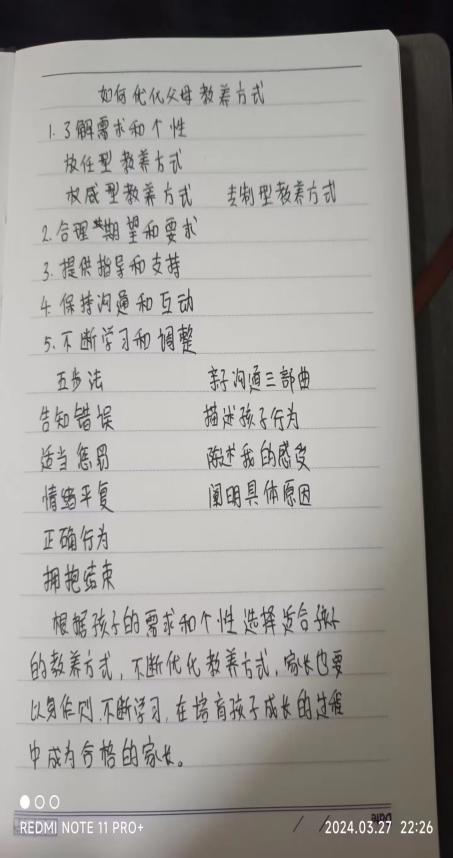 如何优化父母教养方式
1.了解需求和个性
放任型教养方式
权威型教养方式 专制型教养方式
2.合理期望和要求
3.提供指导和支持
4.保持沟通和互动
5.不断学习和调整
五步法 亲子沟通三部曲
告知错误 描述孩子行为
适当惩罚 陈述我的感受
情绪平复 阐明具体原因
正确行为
拥抱结束
根据孩子的需求和个性选择适合孩子
的教养方式,不断优化教养方式,家长也要
以身作则,不断学习,在培育孩子成长的过程
中成为合格的家长。
Date / /
REDMI NOTE 11 PRO+ 2024.03.27 22:26